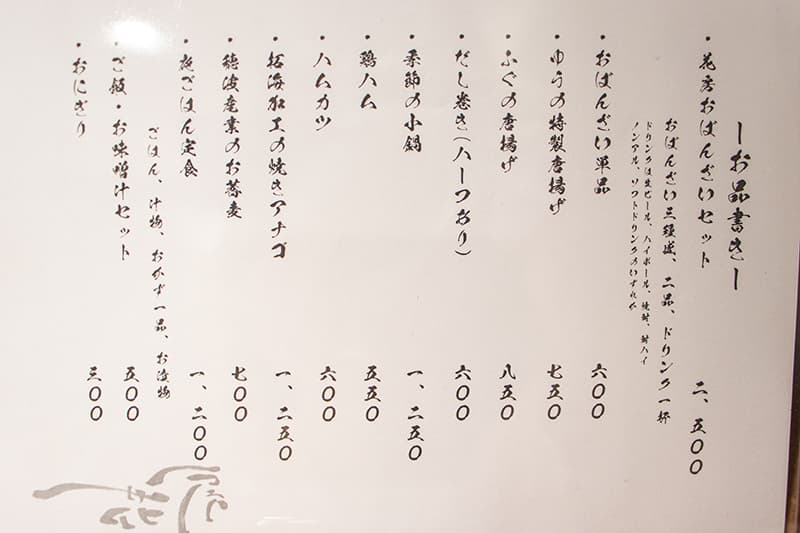 ーお品書きー
・花秀おばんざいセット 二、五〇〇
おばんざい三種盛、二品、ドリンク一杯
ドリンクは生ビール、ハイボール、焼酎、酎ハイ
ノンアル、ソフトドリンクのいずれか
・おばんざい単品 六〇〇
・ゆうの特製唐揚げ 七五〇
・ふぐの唐揚げ 八五〇
・だし巻き(ハーフあり) 六〇〇
・季節の小鍋 一、二五〇
・鶏ハム 五五〇
・ハムカツ 六〇〇
・拓海加工の焼きアナゴ 一、二五〇
・穂波産業のお蕎麦 七〇〇
・夜ごはん定食 一、二〇〇
ごはん、汁物、おかず一品、お漬物
・ご飯・お味噌汁セット 五〇〇
・おにぎり 三〇〇